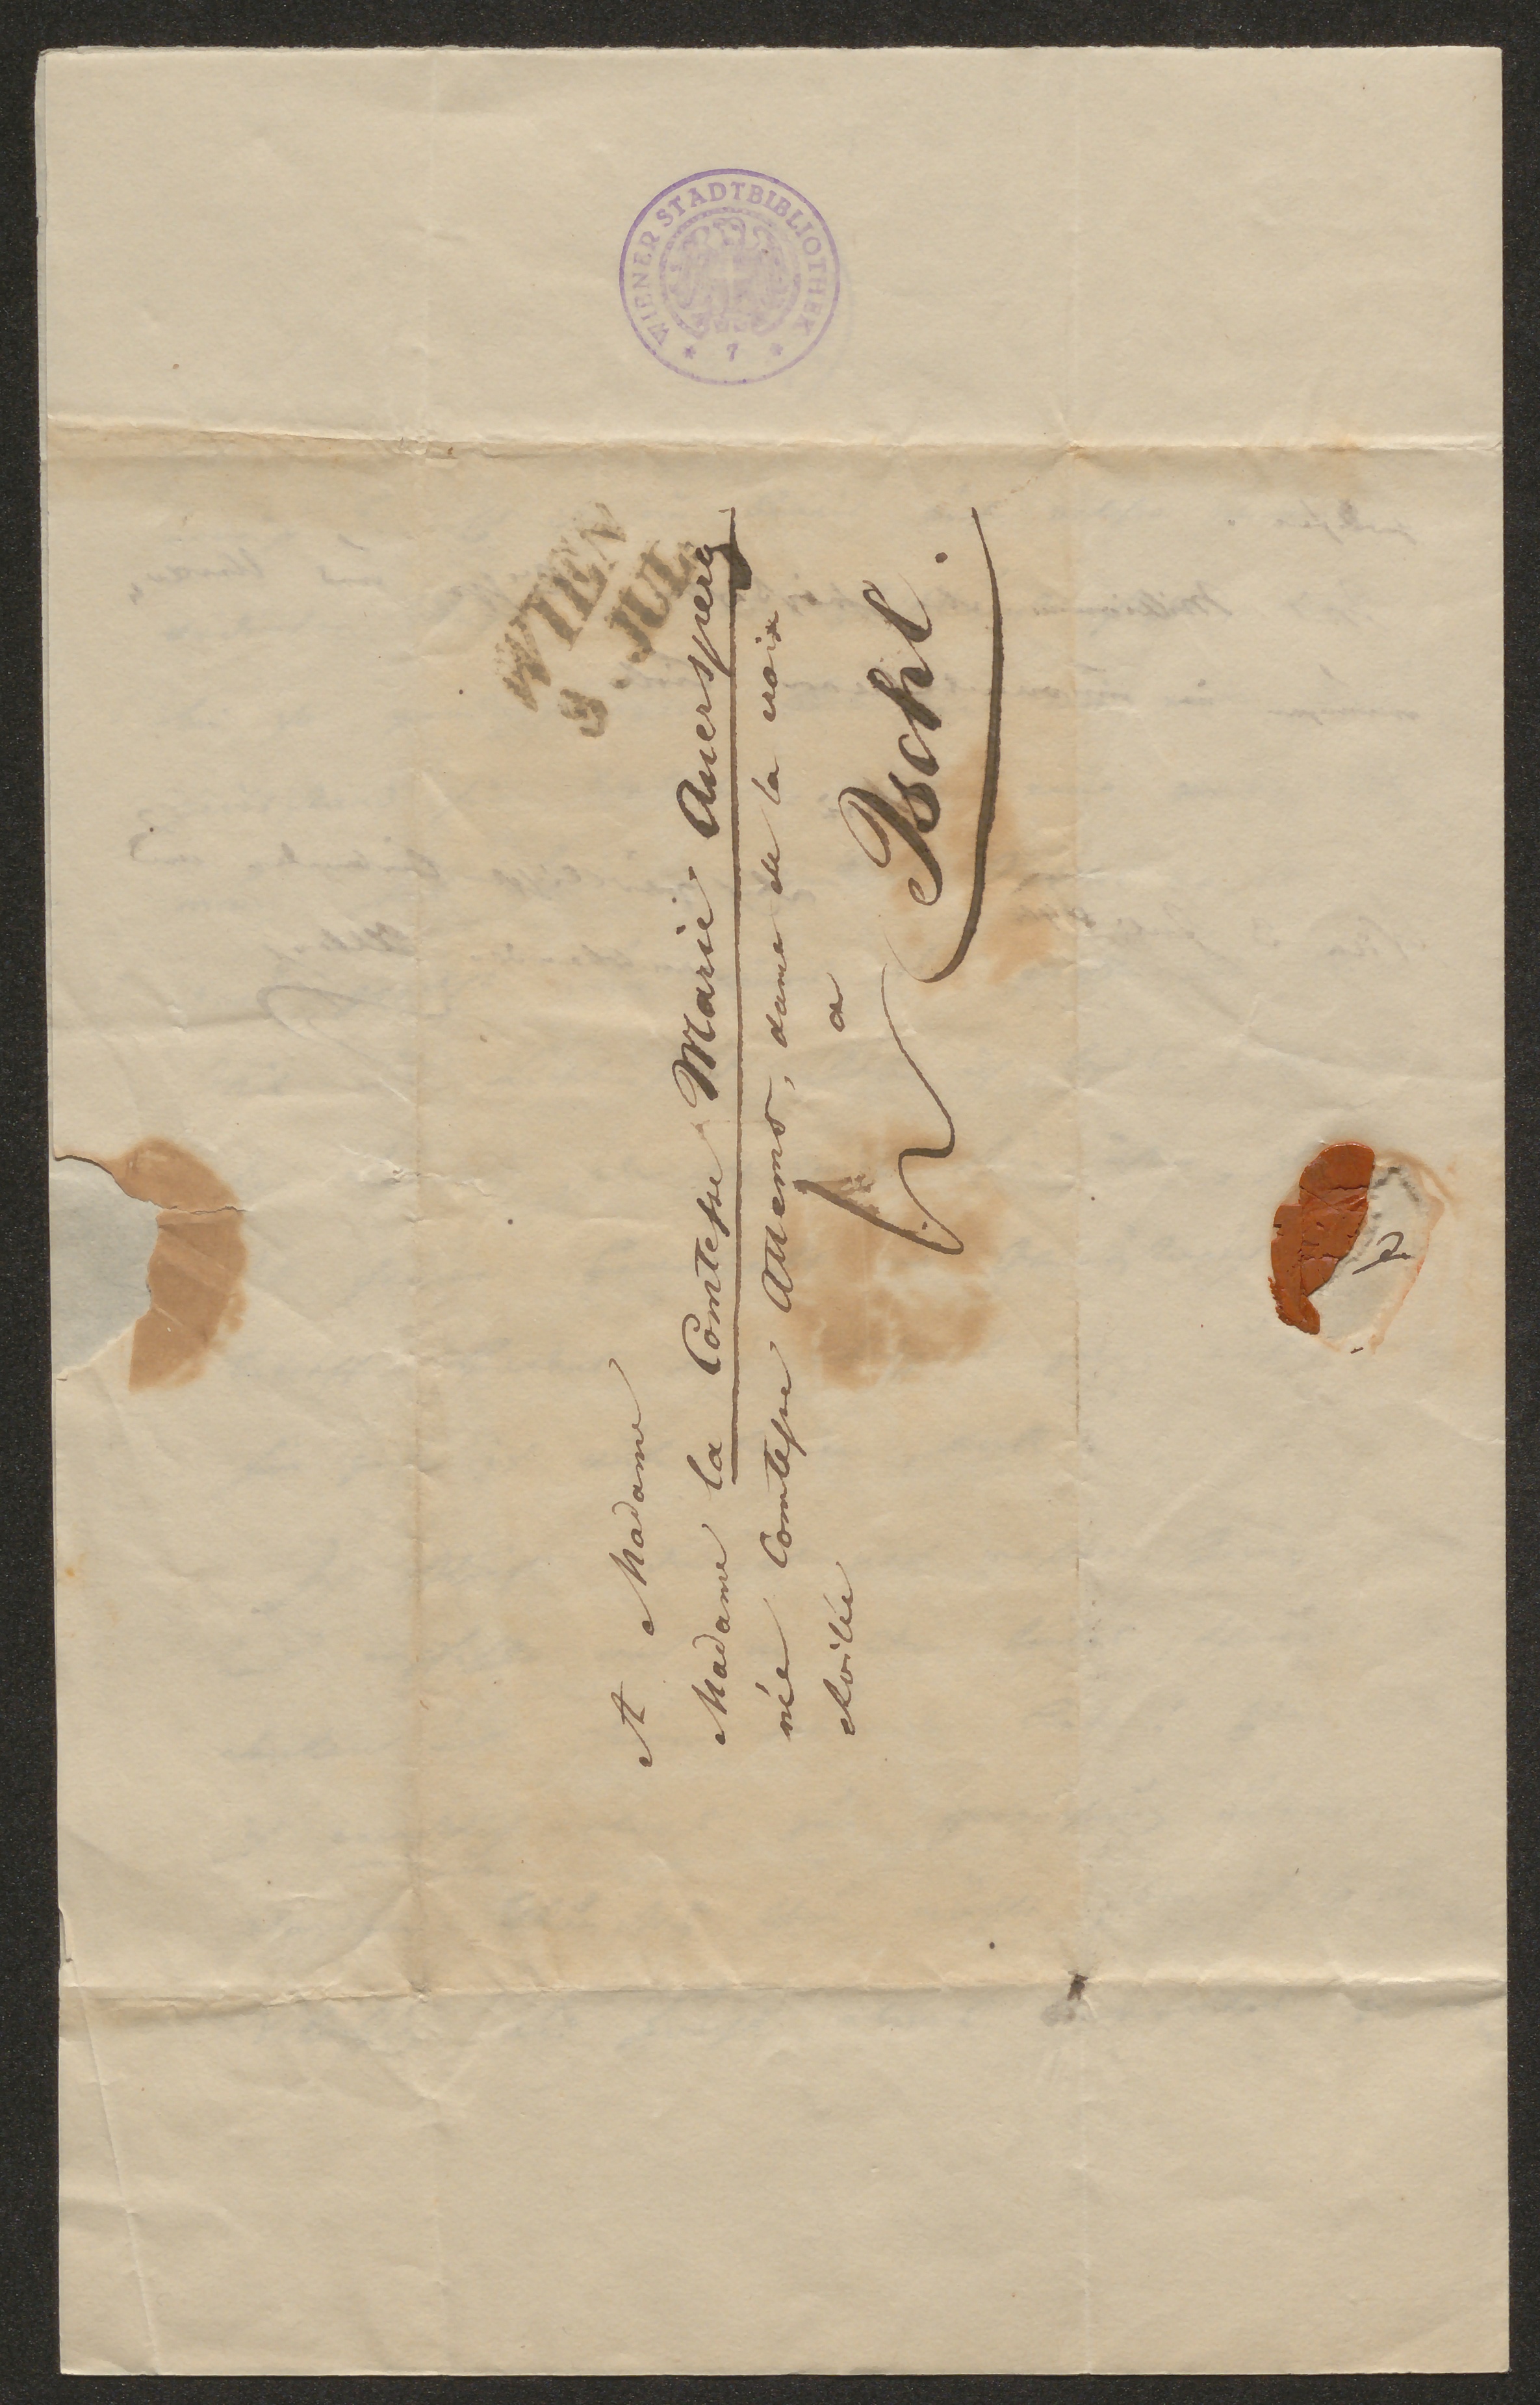 WIENER STADTBIBLIOTHEK
* 7 *
WIEN
3 JUL
A Madame
Madame la Comtesse Marie Auersperg
née Comtesse Attems, dame de la croix
étoilée
a
Ischl.